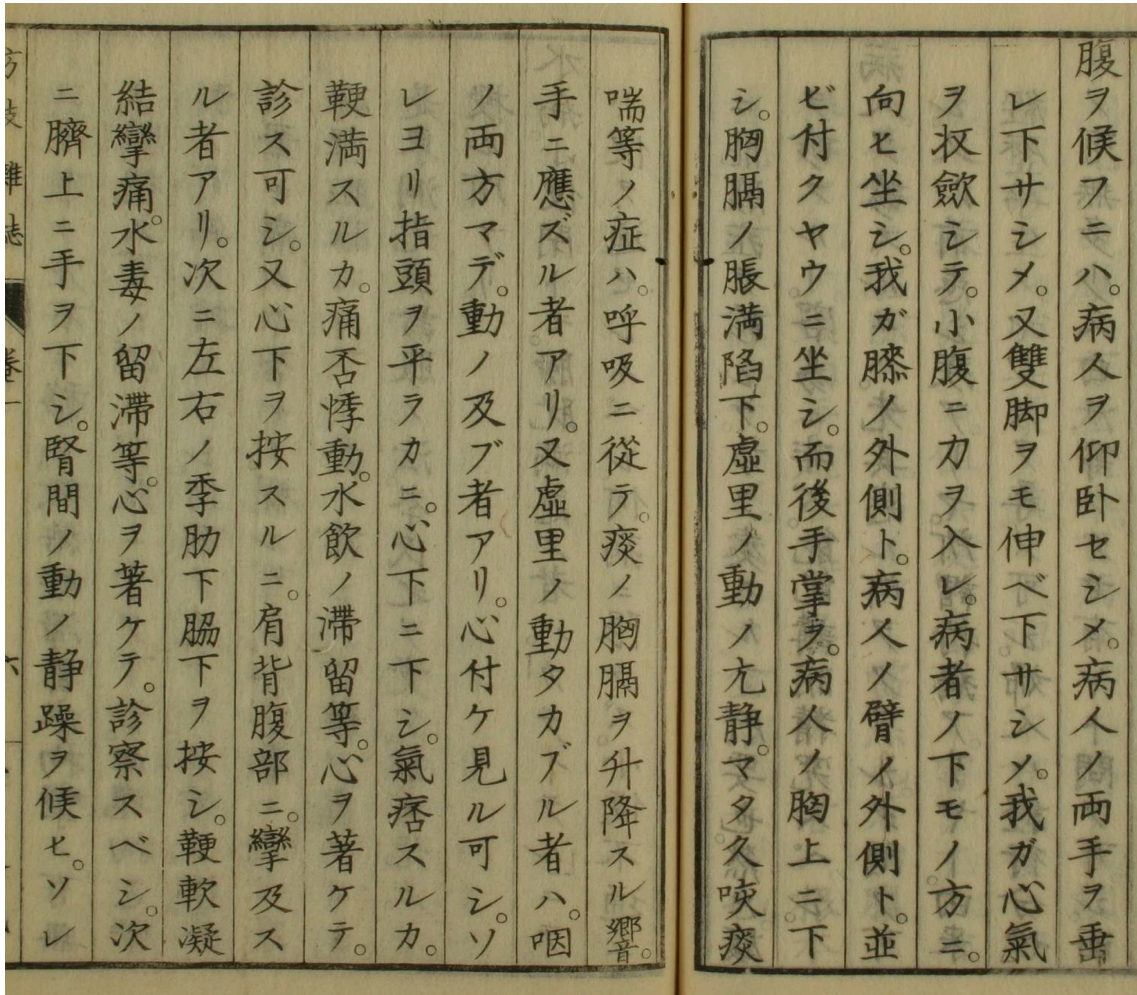 腹ヲ候フニハ。病人ヲ仰卧セシメ。病人ノ両手ヲ垂
レ下サシメ。又雙脚ヲモ伸ベ下サシメ。我ガ心氣
ヲ収歛シテ。小腹ニカヲ入レ。病者ノ下モノ方ニ。
向ヒ坐シ。我ガ膝ノ外側ト。病人ノ臂ノ外側ト。並
ビ付クヤウニ坐シ。而後手掌ヲ。病人ノ胸上ニ下
シ。胸膈ノ脹満陷下。虛里ノ動ノ亢静。マタ久咳痰
喘等ノ症ハ。呼吸ニ從テ。痰ノ胸膈ヲ升降スル響。
手ニ應ズル者アリ。又虛里ノ動タカブル者ハ。咽
ノ両方マデ。動ノ及ブ者アリ。心付ケ見ル可シ。ソ
レヨリ指頭ヲ平ラカニ。心下ニ下シ。氣痞スルカ。
鞕満スルカ。痛否悸動。水飲ノ滯留等。心ヲ著ケテ。
診ス可シ。又心下ヲ按スルニ。肩背腹部ニ。攣及ス
ル者アリ。次ニ左右ノ季肋下脇下ヲ按シ。鞕軟凝
結攣痛。水毒ノ留滯等。心ヲ著ケテ。診察スベシ。次
ニ臍上ニ手ヲ下シ。腎間ノ動ノ静躁ヲ候ヒ。ソレ
方技雜誌 卷一 六